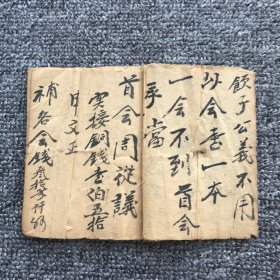 飲子公義不用
以会壹一本
一会不到首会
承當
首会周從議
实接銅錢壹伯五拾
申文正
補各会錢